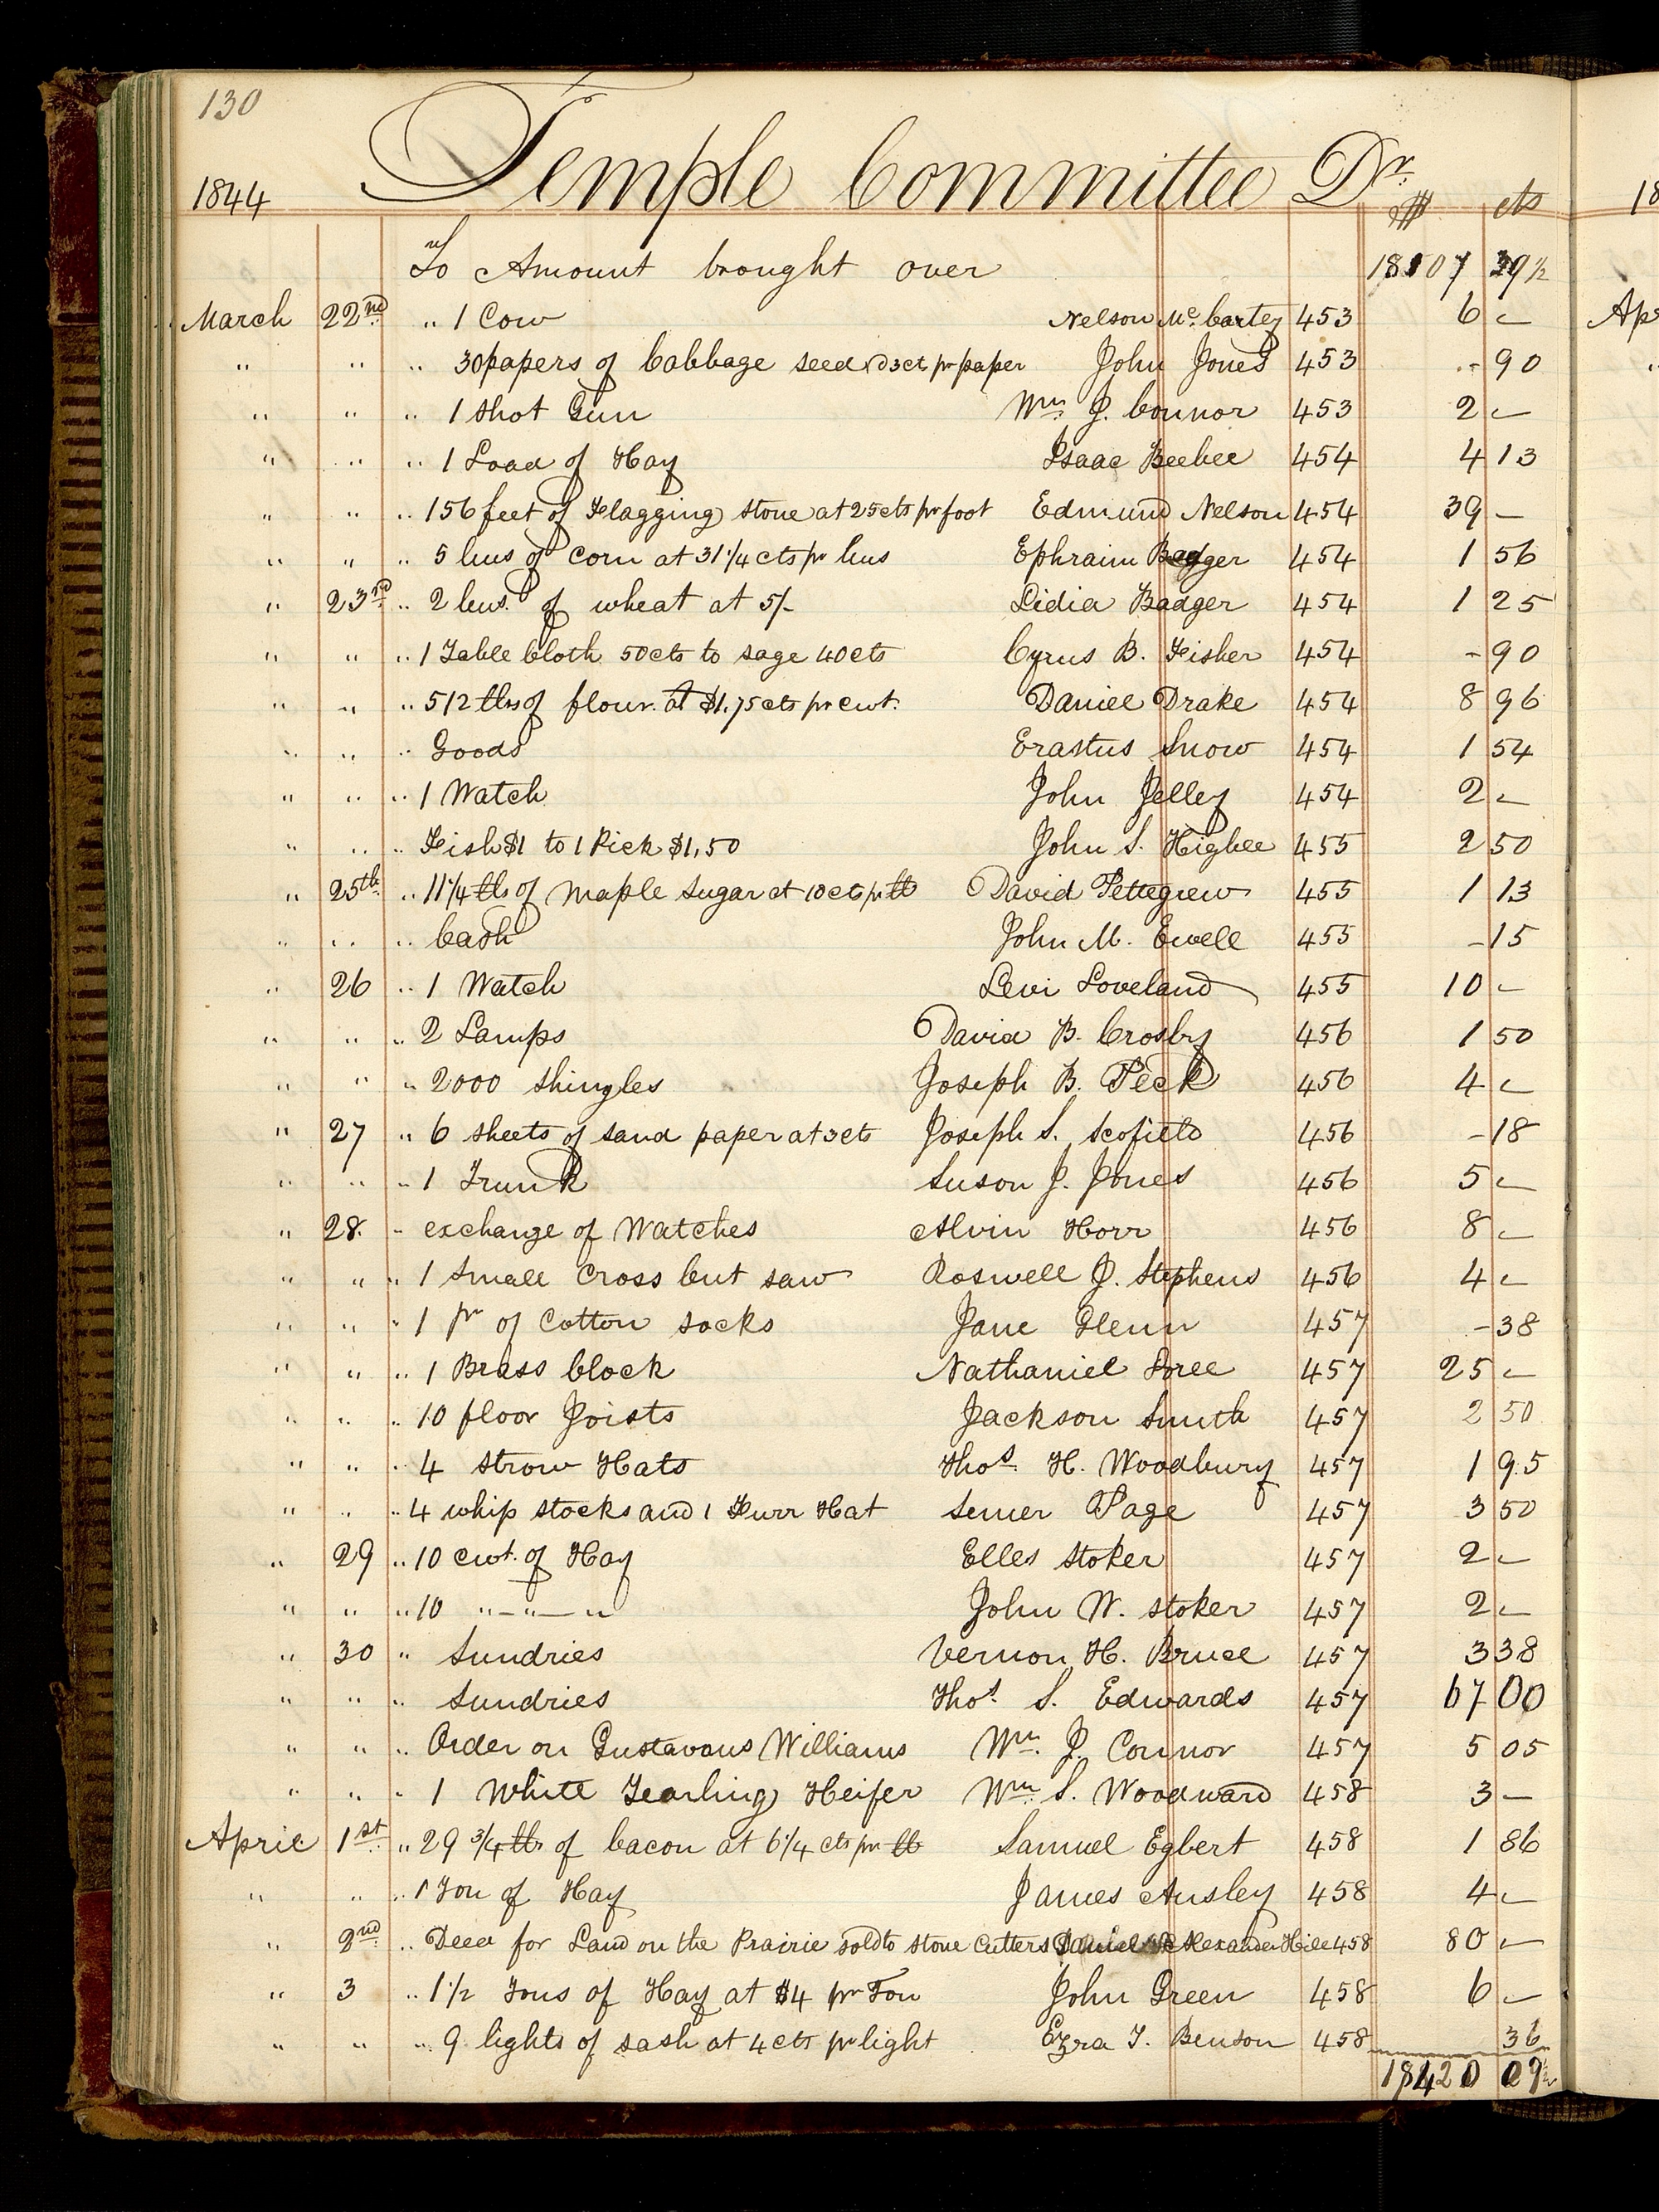 130
1844 Temple Committee Dr. $ cts
To Amount brought over 18107 39½
March 22nd " 1 Cow Nelson Mc. Cartey 453 6 —
" " " 30 papers of Cabbage seed @ 3ct pr paper John Jones 453 - 90
" " " 1 Shot Gun Wm J. Connor 453 2 —
" " " 1 Load of Hay Isaac Beebee 454 4 13
" " " 156 feet of Flagging stone at 25cts pr foot Edmund Nelson 454 39 —
" " " 5 bus of Corn at 31 1/4 cts pr bus Ephraim Badger 454 1 56
" 23rd " 2 bus. of wheat at 5/- Lidia Badger 454 1 25
" " " 1 Table Cloth 50cts to sage 40cts Cyrus B. Fisher 454 - 90
" " " 512 lbs of flour at $1,75cts pr cwt. Daniel Drake 454 8 96
" " " Goods Erastus Snow 454 1 54
" " " 1 Watch John Jelley 454 2 —
" " " Fish $1 to 1 Pick $1,50 John S. Higbee 455 2 50
" 25th " 11 1/4 lbs of Maple Sugar at 10cts pr lb David Pettegrew 455 1 13
" " " Cash John M. Ewell 455 - 15
" 26 " 1 Watch Levi Loveland 455 10 —
" " " 2 Lamps David B. Crosby 456 1 50
" " " 2000 Shingles Joseph B. Peck 456 4 —
" 27 " 6 sheets of sand paper at 3cts Joseph S. Scofield 456 - 18
" " " 1 Trunk Suson J. Jones 456 5 —
" 28. " exchange of Watches Alvin Horr 456 8 —
" " " 1 Small Cross but saw Roswell J. Stephens 456 4 —
" " " 1 pr of Cotton socks Jane Glenn 457 - 38
" " " 1 Brass Clock Nathaniel Loree 457 25 —
" " " 10 floor Joists Jackson Smith 457 2 50
" " " 4 Strow Hats Thos. H. Woodbury 457 1 95
" " " 4 whip stocks and 1 Furr Hat Semer Page 457 3 50
" 29 " 10 cwt. of Hay Elles Stoker 457 2 —
" " " 10 "—"—" John W. Stoker 457 2 —
" 30 " Sundries Vernon H. Bruce 457 3 38
" " " Sundries Thos. S. Edwards 457 67 00
" " " Order on Gustavous Williams Wm. J. Connor 457 5 05
" " " 1 White Yearling Heifer Wm. S. Woodward 458 3 —
April 1st. " 29 3/4 lbs of bacon at 6 1/4 cts pr lb Samuel Egbert 458 1 86
" " " 1 Ton of Hay James Ansley 458 4 —
" 2nd " Deed for Land on the Prairie sold to Stone Cutters Alexander Hill 458 80 —
" 3 " 1 1/2 Tons of Hay at $4 pr Ton John Green 458 6 —
" " " 9 lights of sash at 4cts pr light Ezra T. Benson 458 36
18420 09½